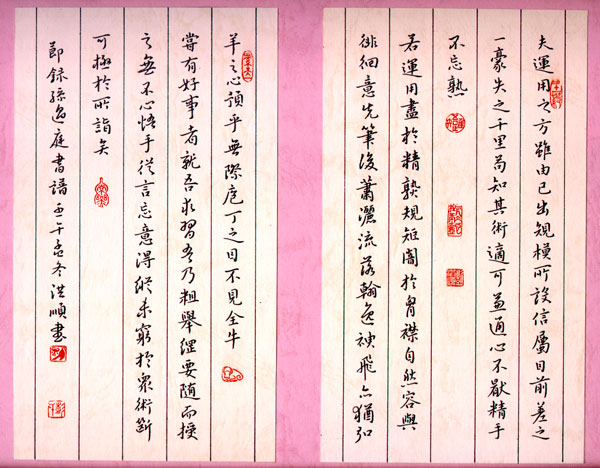 夫運用之方雖由己出規模所設信屬目前差之
一豪失之千里苟知其術適可兼通心不厭精手
不忘熟
若運用盡於精熟規矩闇於胸襟自然容與
徘徊意先筆後瀟灑流落翰逸神飛亦猶弘
羊之心預乎無際庖丁之目不見全牛
嘗有好事者就吾求習吾乃粗舉綱要隨而授
之無不心悟手從言忘意得縱未窮於眾術斷
可極於所詣矣
節錄孫過庭書譜壬午孟冬洪順書